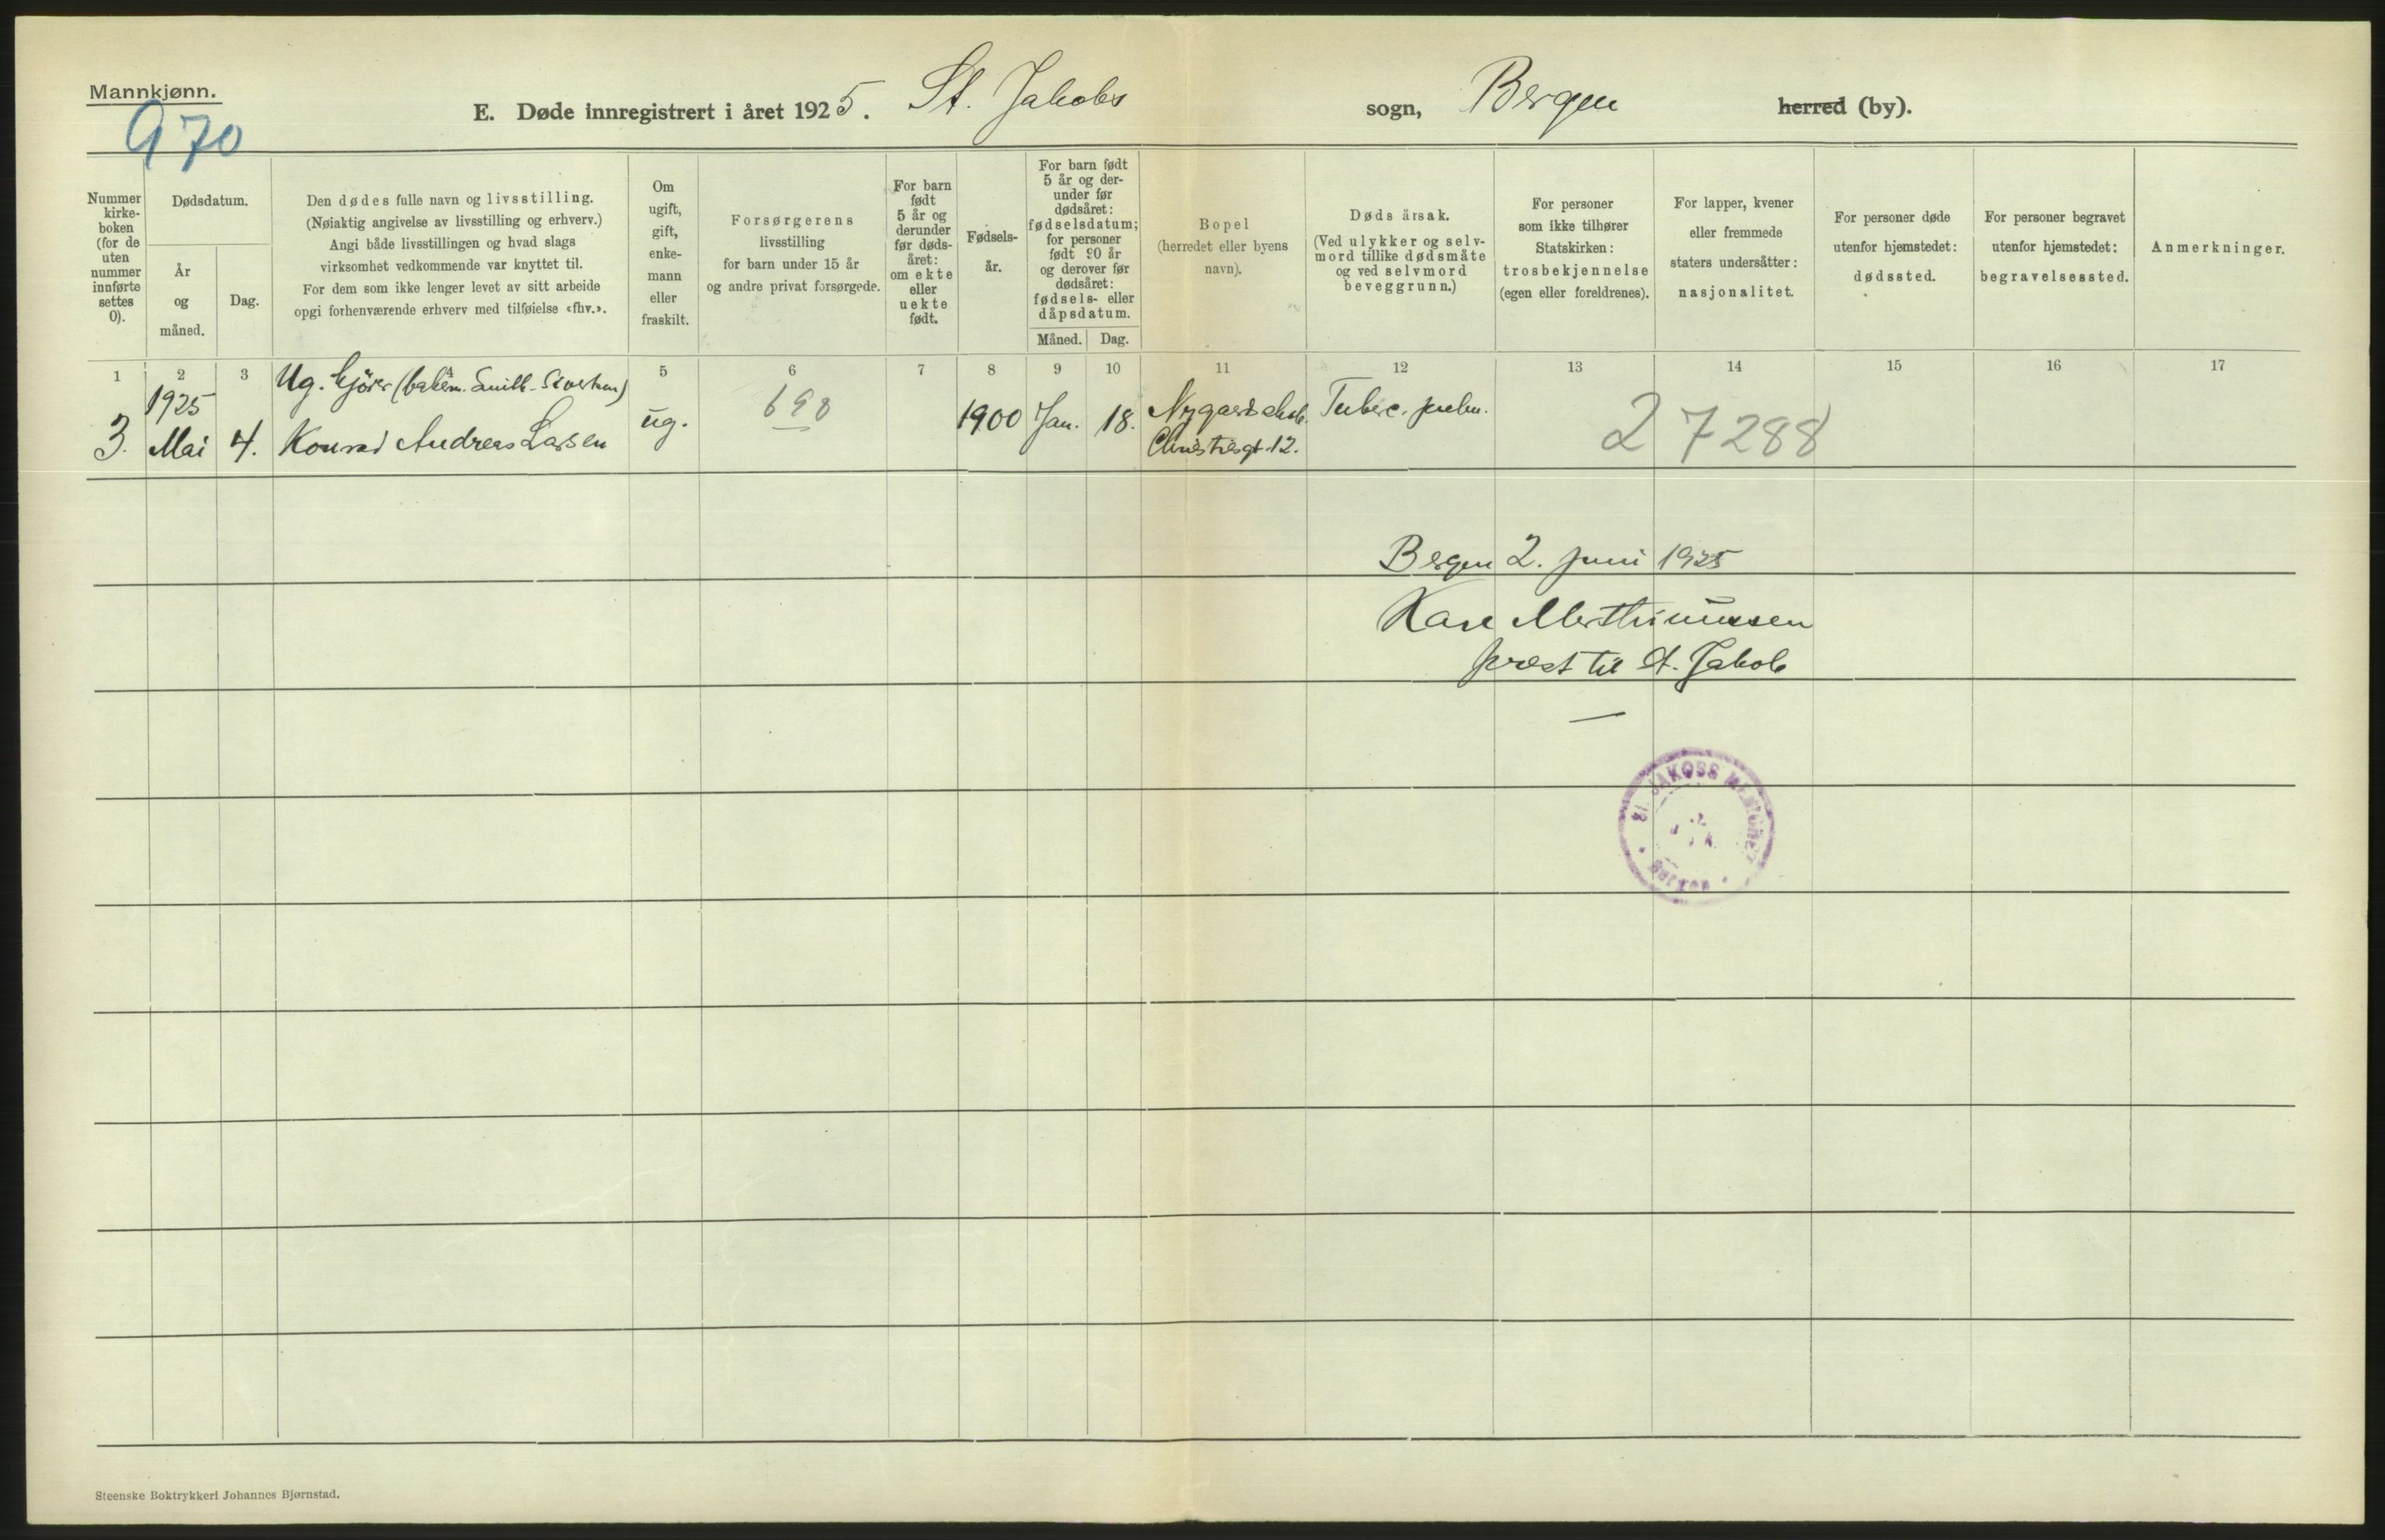 Mannkjønn.
970
E. Døde innregistrert i året 1925. St. Jakobs sogn, Bergen herred (by).
Nummer
kirke-
boken
(for de
uten
nummer
innførte
settes
0).
Dødsdatum.
År
og
måned.
Dag.
Den dødes fulle navn og livsstilling.
(Nøiaktig angivelse av livsstilling og erhverv.)
Angi både livsstillingen og hvad slags
virksomhet vedkommende var knyttet til.
For dem som ikke lenger levet av sitt arbeide
opgi forhenværende erhverv med tilføielse «fhv.».
Om
ugift,
gift,
enke-
mann
eller
fraskilt.
Forsørgerens
livsstilling
for barn under 15 år
og andre privat forsørgede.
For barn
født
5 år og
derunder
før døds-
året:
om ekte
eller
uekte
født.
Fødsels-
år.
For barn født
5 år og der-
under før
dødsåret:
fødselsdatum;
for personer
født 90 år
og derover før
dødsåret:
fødsels- eller
dåpsdatum.
Måned. Dag.
Bopel
(herredet eller byens
navn).
Dødsårsak.
(Ved ulykker og selv-
mord tillike dødsmåte
og ved selvmord
beveggrunn.)
For personer
som ikke tilhører
Statskirken:
trosbekjennelse
(egen eller foreldrenes).
For lapper, kvener
eller fremmede
staters undersåtter:
nasjonalitet.
For personer døde
utenfor hjemstedet:
dødssted.
For personer begravet
utenfor hjemstedet:
begravelsessted.
Anmerkninger.
1 2 3 5 6 7 8 9 10 11 12 13 14 15 16 17
Ug.
1925
3. Mai 4. Konrad Andreas Larsen ug. 698 1900 Jan. 18.
Christiesgt. 12.
Tuberc. pulm.
27288
Bergen 2. juni 1925
prest til St. Jakob
St. JAKOBS MENIGHET
Bergen
Steenske Boktrykkeri Johannes Bjørnstad.